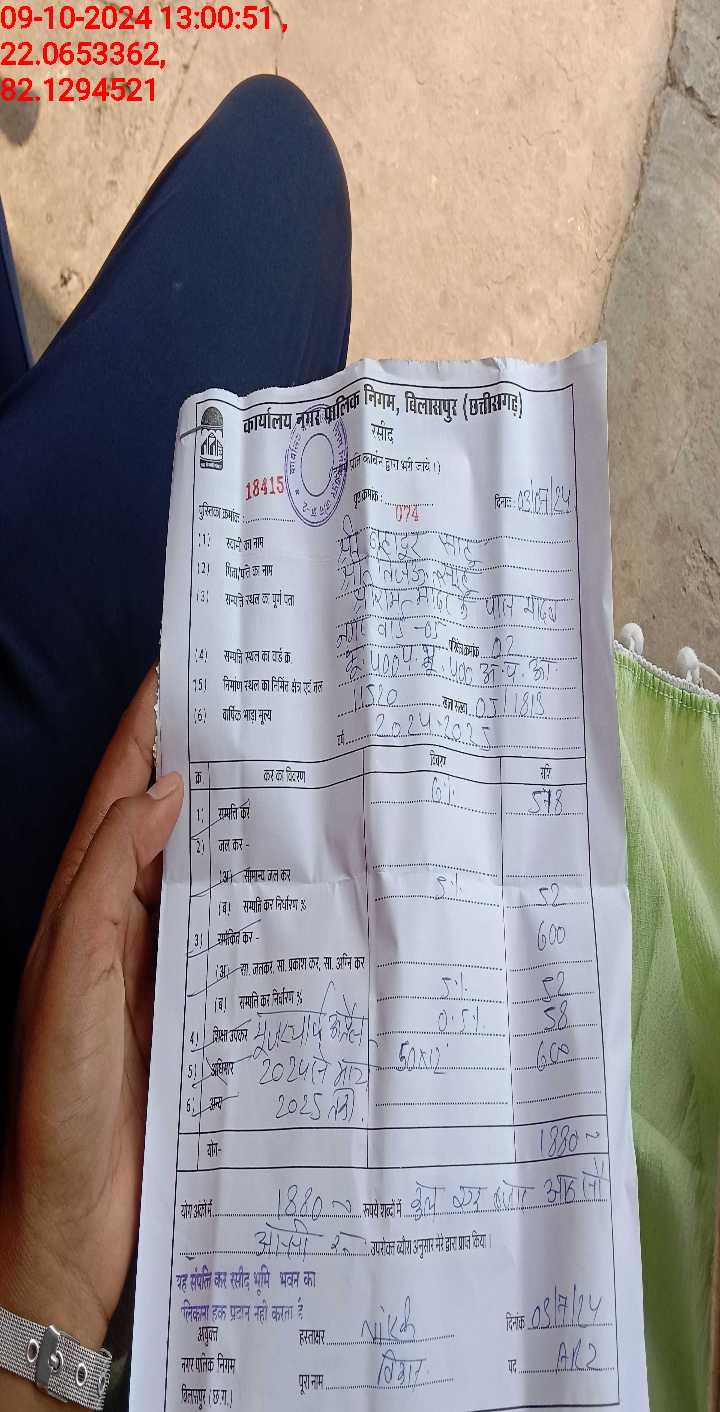 09-10-2024 13:00:51,
22.0653362,
82.1294521
कार्यालय नगर पालिक निगम, बिलासपुर (छत्तीसगढ़)
रसीद
प्रति कार्बन द्वारा भरी जाये।)
पुस्तिका क्रमांक : 18415 पृष्ठ क्रमांक : 074 दिनांक : 03/07/24
(1) स्वामी का नाम प्रेम बहादुर साहू
(2) पिता/पति का नाम
(3) सम्पत्ति स्थल का पूर्ण पता श्रीराम मंदिर के पास
नगर वार्ड -05
(4) सम्पत्ति स्थल का वार्ड क्र. 02
(5) निर्माण स्थल का निर्मित क्षेत्र एवं तल
(6) वार्षिक भाड़ा मूल्य 11520
वर्ष 2024-2025
क्र. कर का विवरण विवरण राशि
1) सम्पत्ति कर 6% 578
2) जल कर -
(अ) सामान्य जल कर
(ब) सम्पत्ति कर निर्धारण % 5% 52
3) समेकित कर - 600
(अ) सा. जलकर, सा. प्रकाश कर, सा. अग्नि कर
(ब) सम्पत्ति कर निर्धारण % 5% 52
4) शिक्षा उपकर 0.5% 58
5) अधिभार 2024 से मार्च 50x12 600
6) अन्य 2025 तक
योग- 1880
योग अंकों में 1880 रूपये शब्दों में कुल एक हजार आठ सौ
अस्सी रू उपरोक्त ब्यौरा अनुसार मेरे द्वारा प्राप्त किया।
यह संपत्ति कर रसीद भूमि भवन का
मालिकाना हक प्रदान नही करता है
आयुक्त हस्ताक्षर दिनांक 03/7/24
नगर पालिक निगम पूरा नाम पद AR2
बिलासपुर (छ.ग.)